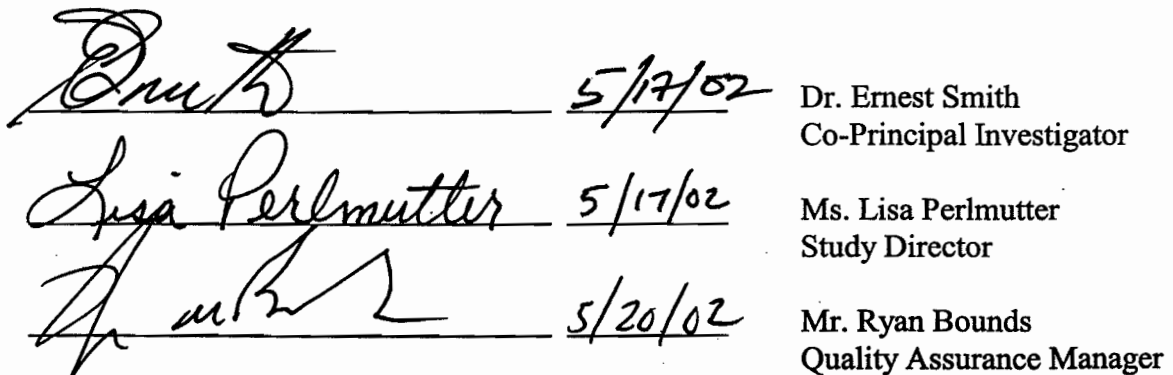 5/17/02 Dr. Ernest Smith
Co-Principal Investigator
Lisa Perlmutter 5/17/02 Ms. Lisa Perlmutter
Study Director
5/20/02 Mr. Ryan Bounds
Quality Assurance Manager